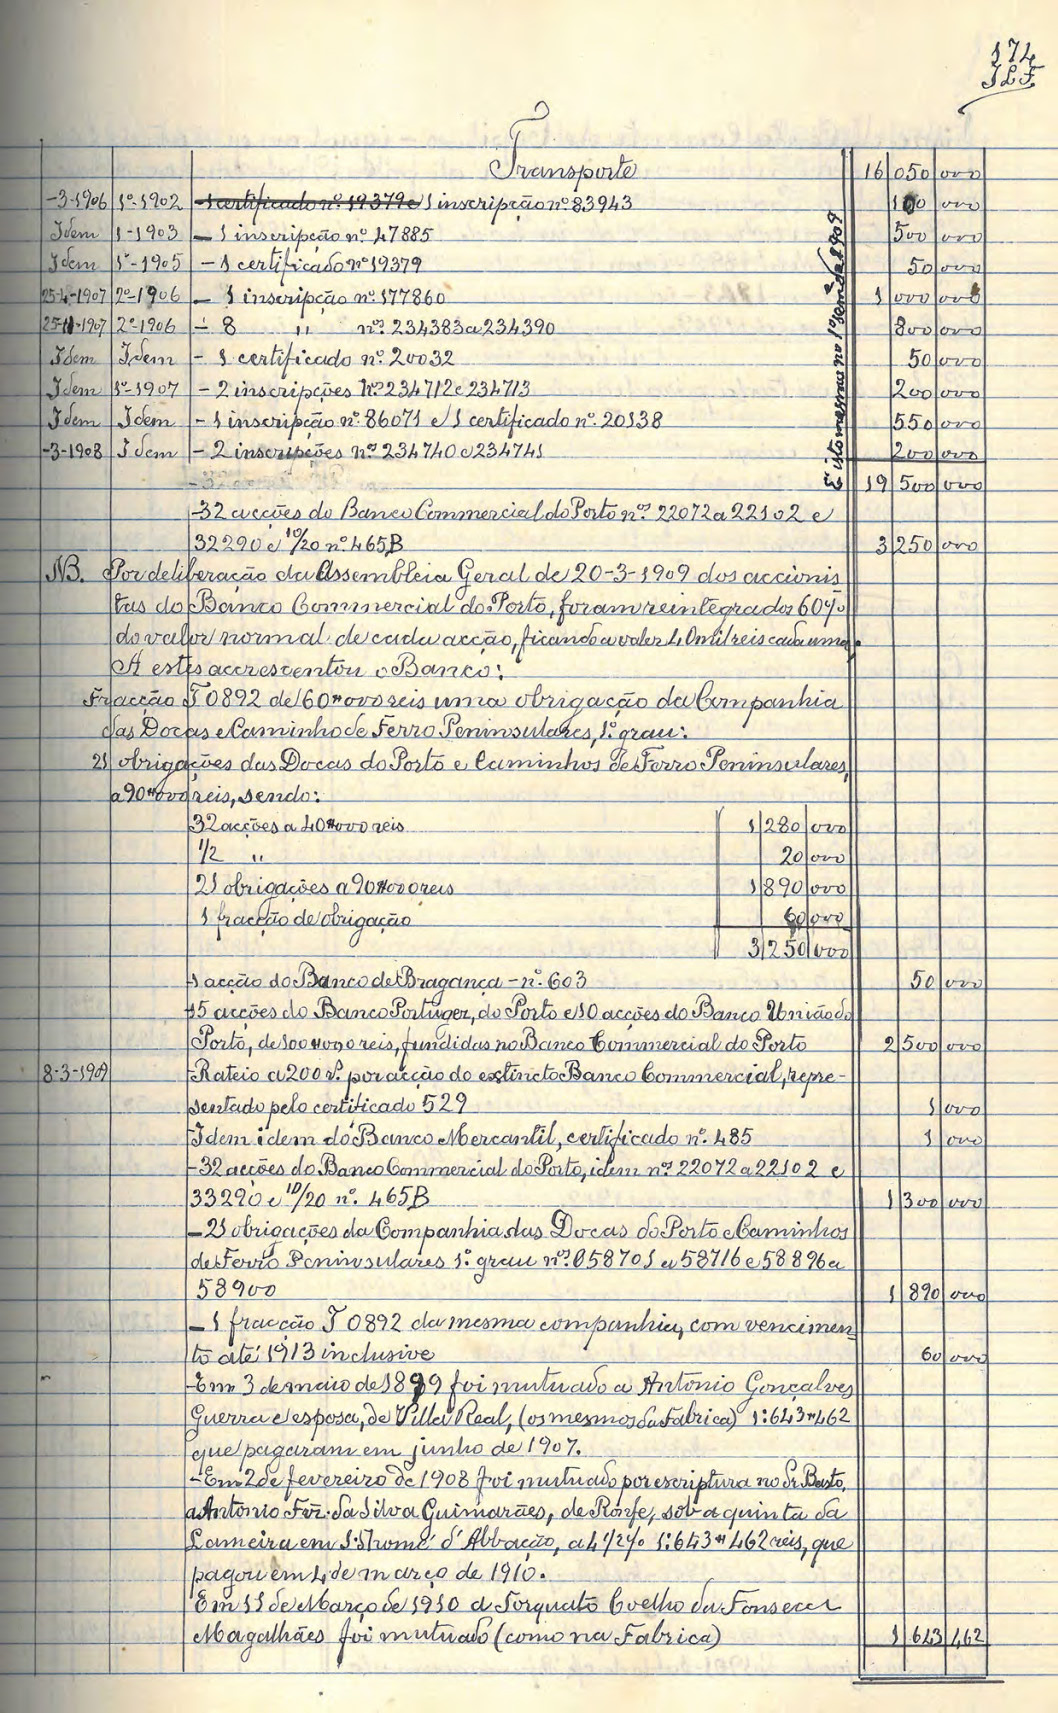 174
J L F.
Transporte 16 050 000
-3-1906 1º-1902 -1 certificado nº 19379 e 1 inscripção nº 83943 100 000
Idem 1-1903 - 1 inscripção nº 47885 500 000
Idem 1º-1905 - 1 certificado nº 19379 50 000
25-4-1907 2º-1906 - 1 inscripção nº 177860 1 000 000
25-11-1907 2º-1906 - 8 " nºs 234383 a 234390 800 000
Idem Idem - 1 certificado nº 20032 50 000
Idem 1º-1907 - 2 inscripções Nºs 234712 e 234713 200 000
Idem Idem - 1 inscripção nº 86071 e 1 certificado nº 20138 550 000
-3-1908 Idem - 2 inscripções nºs 234740 e 234741 200 000
E isto mesmo no 1º sem. de 1909
19 500 000
-32 acções do Banco Commercial do Porto nºs 22072 a 22102 e
32290 e 10/20 nº 465B 3 250 000
NB. Por deliberação da Assembleia Geral de 20-3-1909 dos accionis
tas do Banco Commercial do Porto, foram reintegrados 60%
do valor normal de cada acção, ficando a valer 40 mil reis cada uma.
A estes accrescentou o Banco:
Fracção T 0892 de 60#000 reis uma obrigação da Companhia
das Docas e Caminho de Ferro Peninsulares, 1º grau:
21 obrigações das Docas do Porto e Caminhos de Ferro Peninsulares,
a 90#000 reis, sendo:
32 acções a 40#000 reis 1 280 000
1/2 " 20 000
21 obrigações a 90#000 reis 1 890 000
1 fracção de obrigação 60 000
3 250 000
-1 acção do Banco de Bragança - nº 603 50 000
15 acções do Banco Portuguez, do Porto e 10 acções do Banco União do
Porto, de 100#000 reis, fundidas no Banco Commercial do Porto 2 500 000
8-3-1909 -Rateio a 200 rs. por acção do extincto Banco Commercial, repre-
sentado pelo certificado 529 1 000
-Idem idem do Banco Mercantil, certificado nº 485 1 000
-32 acções do Banco Commercial do Porto, idem nºs 22072 a 22102 e
33290 e 10/20 nº 465B 1 300 000
-21 obrigações da Companhia das Docas do Porto e Caminhos
de Ferro Peninsulares 1º grau nºs 058701 a 58716 e 58896 a
58900 1 890 000
-1 fracção T 0892 da mesma companhia, com vencimen
to até 1913 inclusive 60 000
-Em 3 de maio de 1899 foi mutuado a Antonio Gonçalves
Guerra e esposa, de Villa Real, (os mesmos da Fabrica) 1:643#462
que pagaram em junho de 1907.
-Em 2 de fevereiro de 1908 foi mutuado por escriptura no Sr. Basto,
a Antonio Frz. da Silva Guimarães, de Ronfe, sob a quinta da
Lameira em S. Thomé d'Abbação, a 4 1/2% 1:643#462 reis, que
pagou em 4 de março de 1910.
Em 11 de Março de 1910 a Torquato Coelho da Fonseca
Magalhães foi mutuado (como na Fabrica) 1 643 462